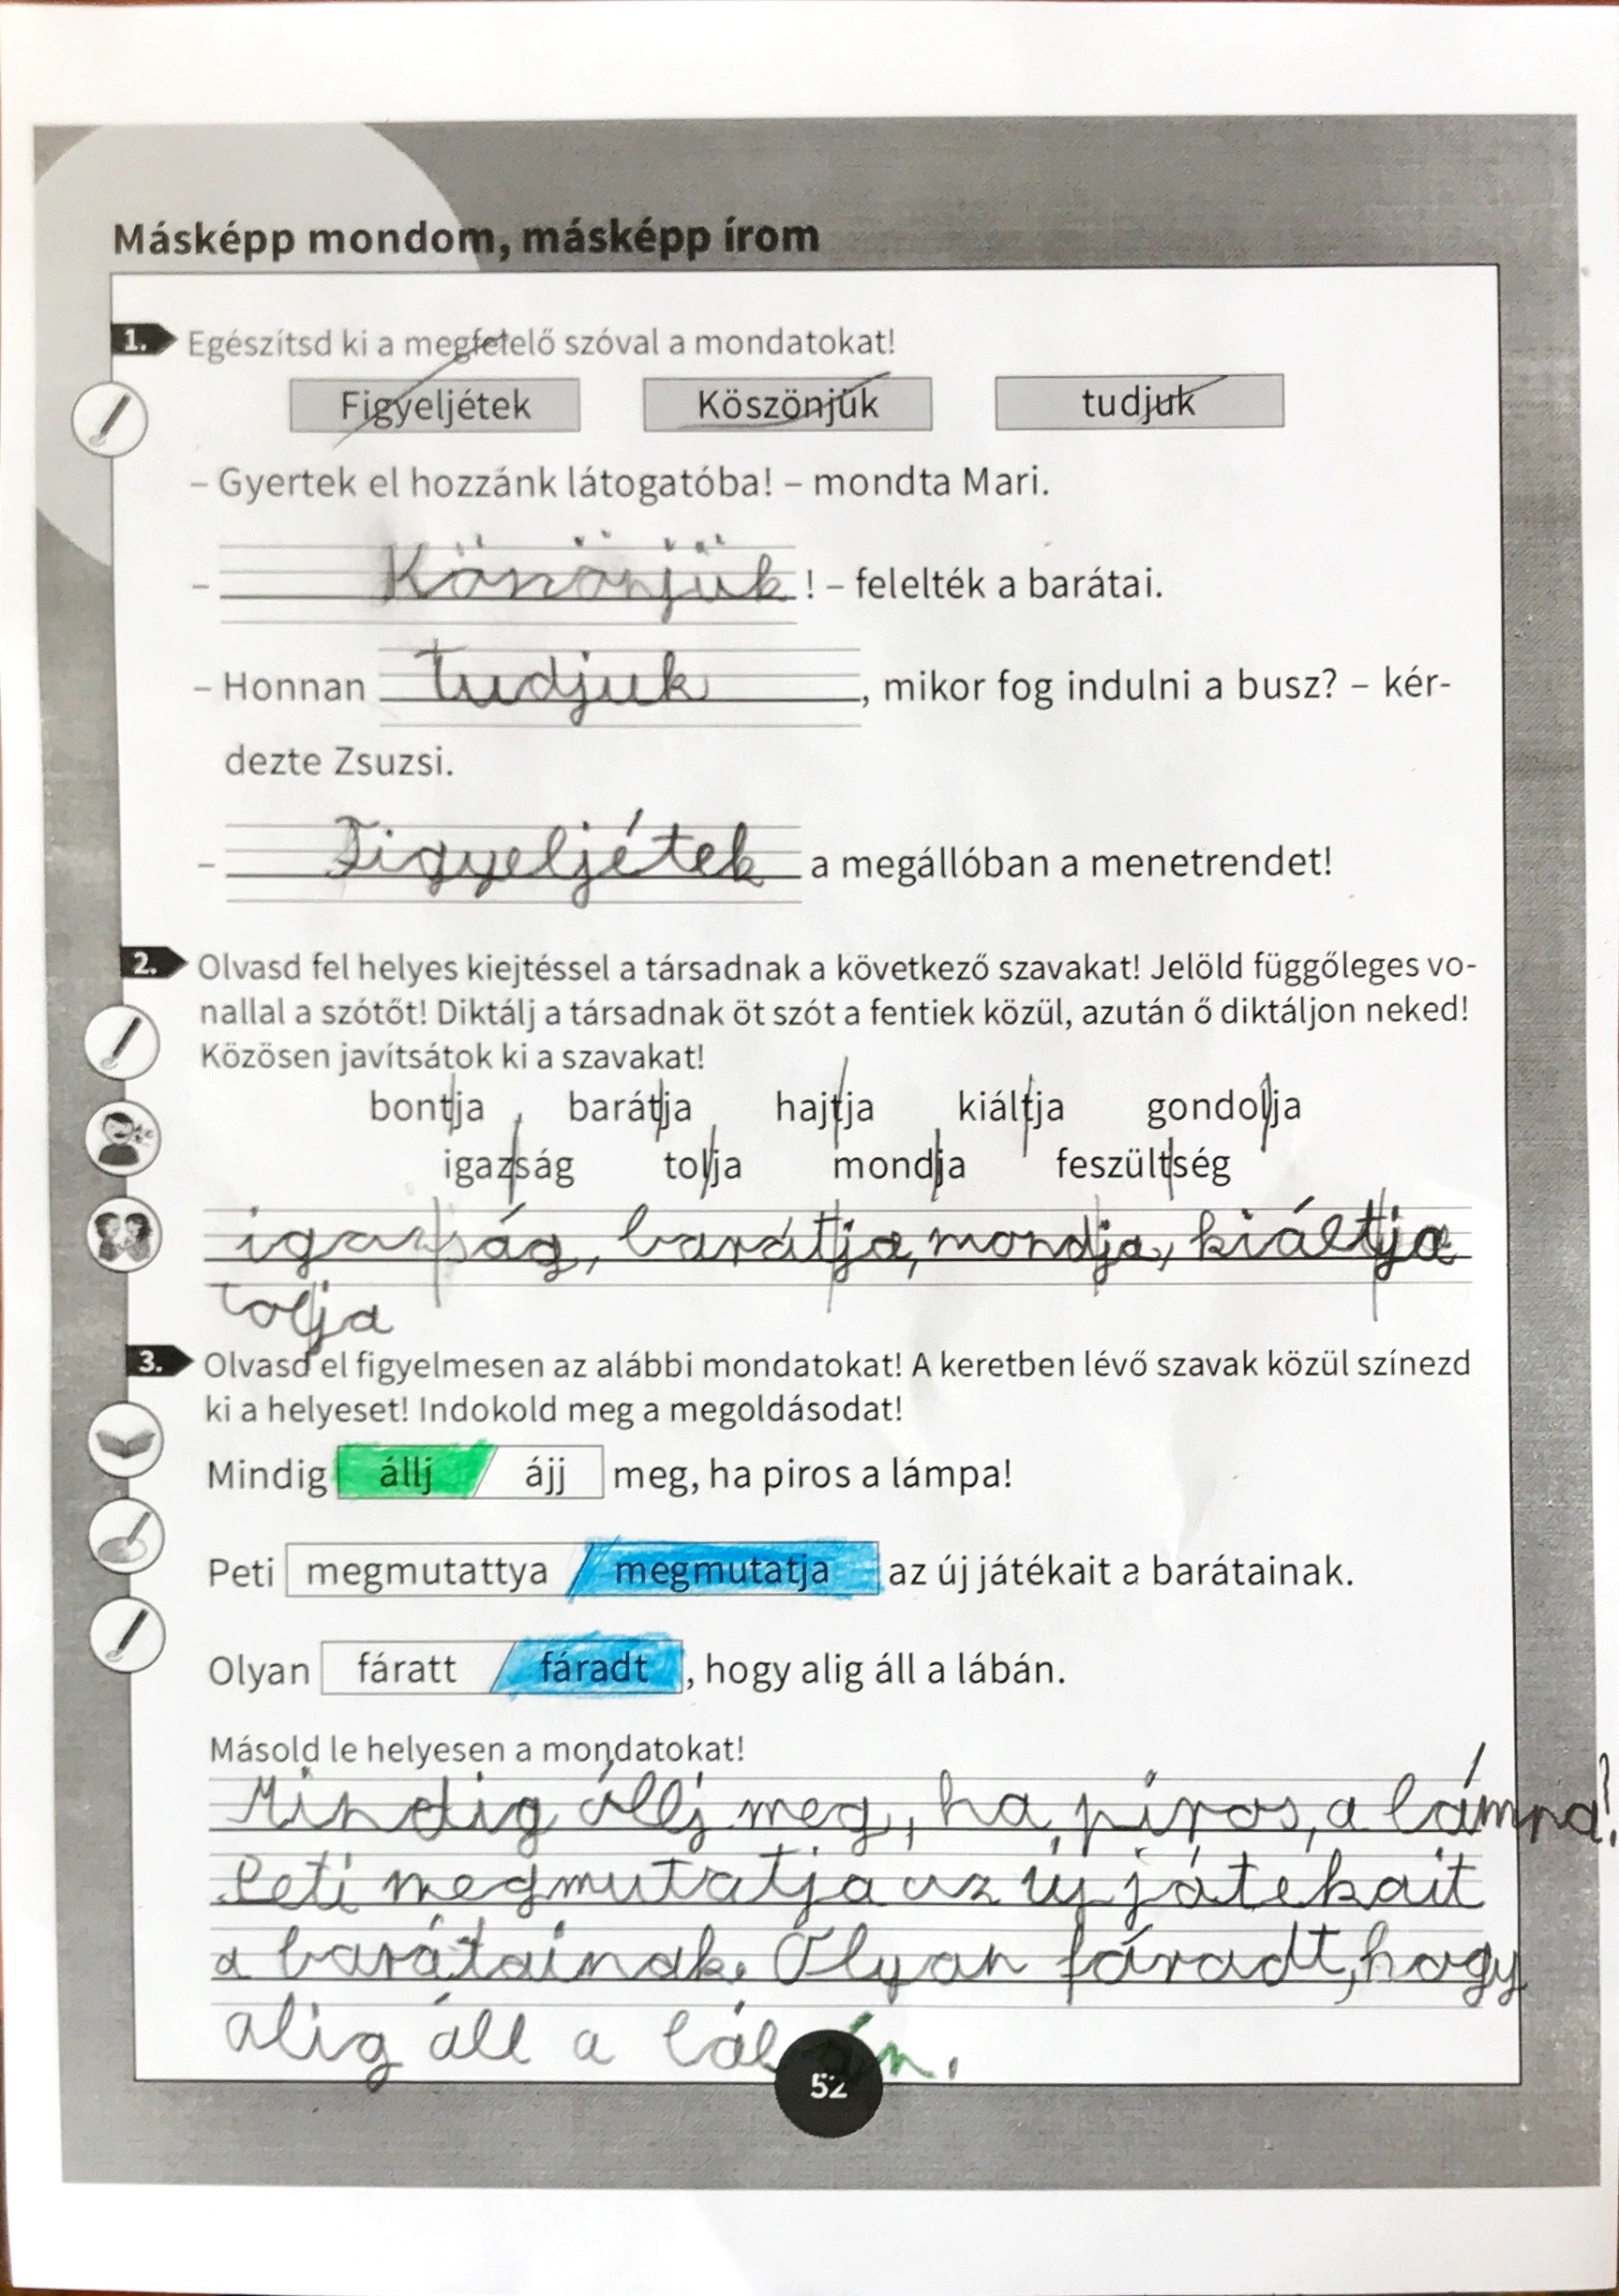 Másképp mondom, másképp írom
1. Egészítsd ki a megfelelő szóval a mondatokat!
Figyeljétek Köszönjük tudjuk
– Gyertek el hozzánk látogatóba! – mondta Mari.
– Köszönjük ! – felelték a barátai.
– Honnan tudjuk , mikor fog indulni a busz? – kér-
dezte Zsuzsi.
– Figyeljétek a megállóban a menetrendet!
2. Olvasd fel helyes kiejtéssel a társadnak a következő szavakat! Jelöld függőleges vo-
nallal a szótőt! Diktálj a társadnak öt szót a fentiek közül, azután ő diktáljon neked!
Közösen javítsátok ki a szavakat!
bontja barátja hajtja kiáltja gondolja
igazság tolja mondja feszültség
igazság, barátja, mondja, kiáltja
tolja
3. Olvasd el figyelmesen az alábbi mondatokat! A keretben lévő szavak közül színezd
ki a helyeset! Indokold meg a megoldásodat!
Mindig állj / ájj meg, ha piros a lámpa!
Peti megmutattya / megmutatja az új játékait a barátainak.
Olyan fáratt / fáradt , hogy alig áll a lábán.
Másold le helyesen a mondatokat!
Mindig állj meg, ha piros, a lámpa!
Peti megmutatja az új játékait
a barátainak. Olyan fáradt, hogy
alig áll a lábán.
52